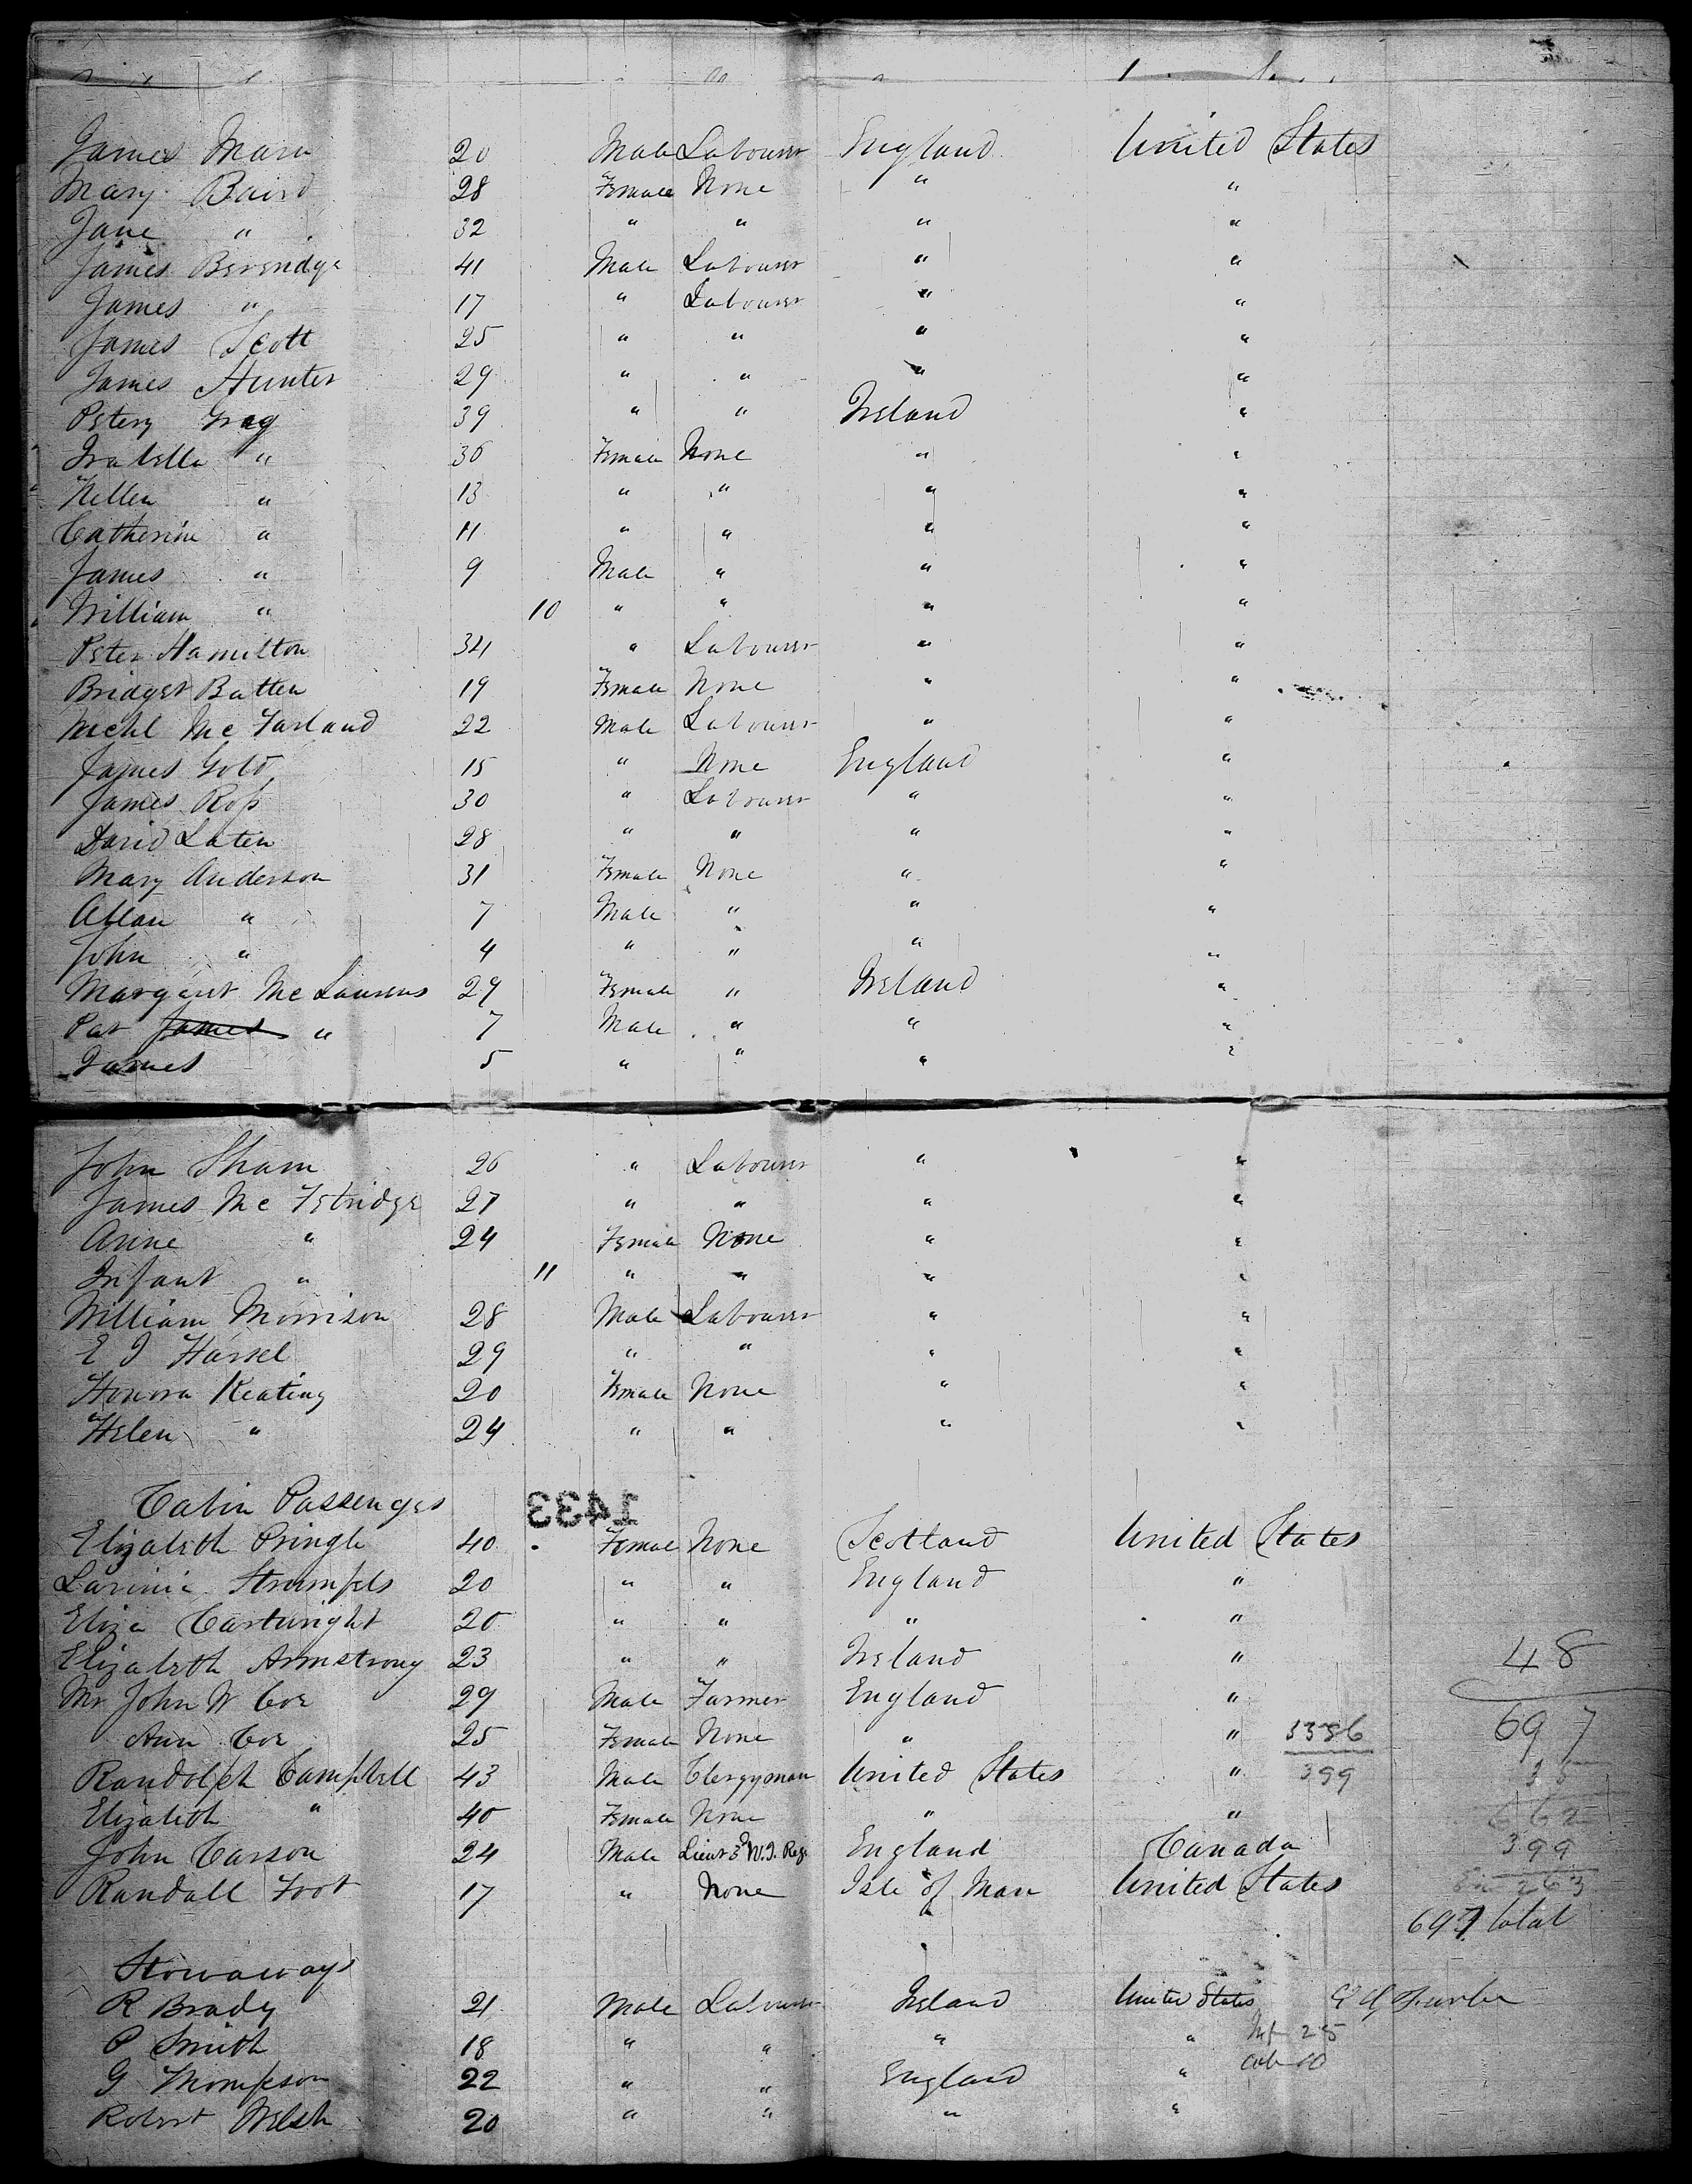 James Marn 20 Male Labourer England United States
Mary Baird 28 Female None " "
Jane " 32 " " " "
James Beveridge 41 Male Labourer " "
James " 17 " Labourer " "
James Scott 25 " " " "
James Hunter 29 " " " "
Petery Gray 39 " " Ireland "
Isabella " 36 Female None " "
Hellen " 13 " " " "
Catherine " 11 " " " "
James " 9 Male " " "
William " 10 " " " "
Peter Hamilton 34 " Labourer " "
Bridget Batten 19 Female None " "
Michl McFarland 22 Male Labourer " "
James Gold 15 " None England "
James Ross 30 " Labourer " "
David Laten 28 " " " "
Mary Anderson 31 Female None " "
Allan " 7 Male " " "
John " 4 " " " "
Margaret McLaurens 29 Female " Ireland "
Pat James " 7 Male " " "
James 5 " " " "
John Sham 26 " Labourer " "
James McFetridge 27 " " " "
Anne " 24 Female None " "
Infant " 11 " " " "
William Morrison 28 Male Labourer " "
E J Hassel 29 " " " "
Honora Keating 20 Female None " "
Helen " 24 " " " "
Cabin Passenges
1433
Elizabeth Pringle 40 Female None Scotland United States
Lavinia Strumpels 20 " " England "
Eliza Cartwright 20 " " " "
Elizabeth Armstrong 23 " " Ireland " 48
Mr John W Coe 29 Male Farmer England "
Ann Coe 25 Female None " " 3336 697
Randolph Campbell 43 Male Clergyman United States " 399 35
Elizabeth " 40 Female None " " 662
John Carson 24 Male Lieut 3d W.I. Reg. England Canada 399
Randall Foot 17 " None Isle of Man United States 263
697 total
Stowaways
R Brady 21 Male Labourer Ireland United States
P Smith 18 " " " " Inf 25
G Thompson 22 " " England " Cab 10
Robert Welsh 20 " " " "